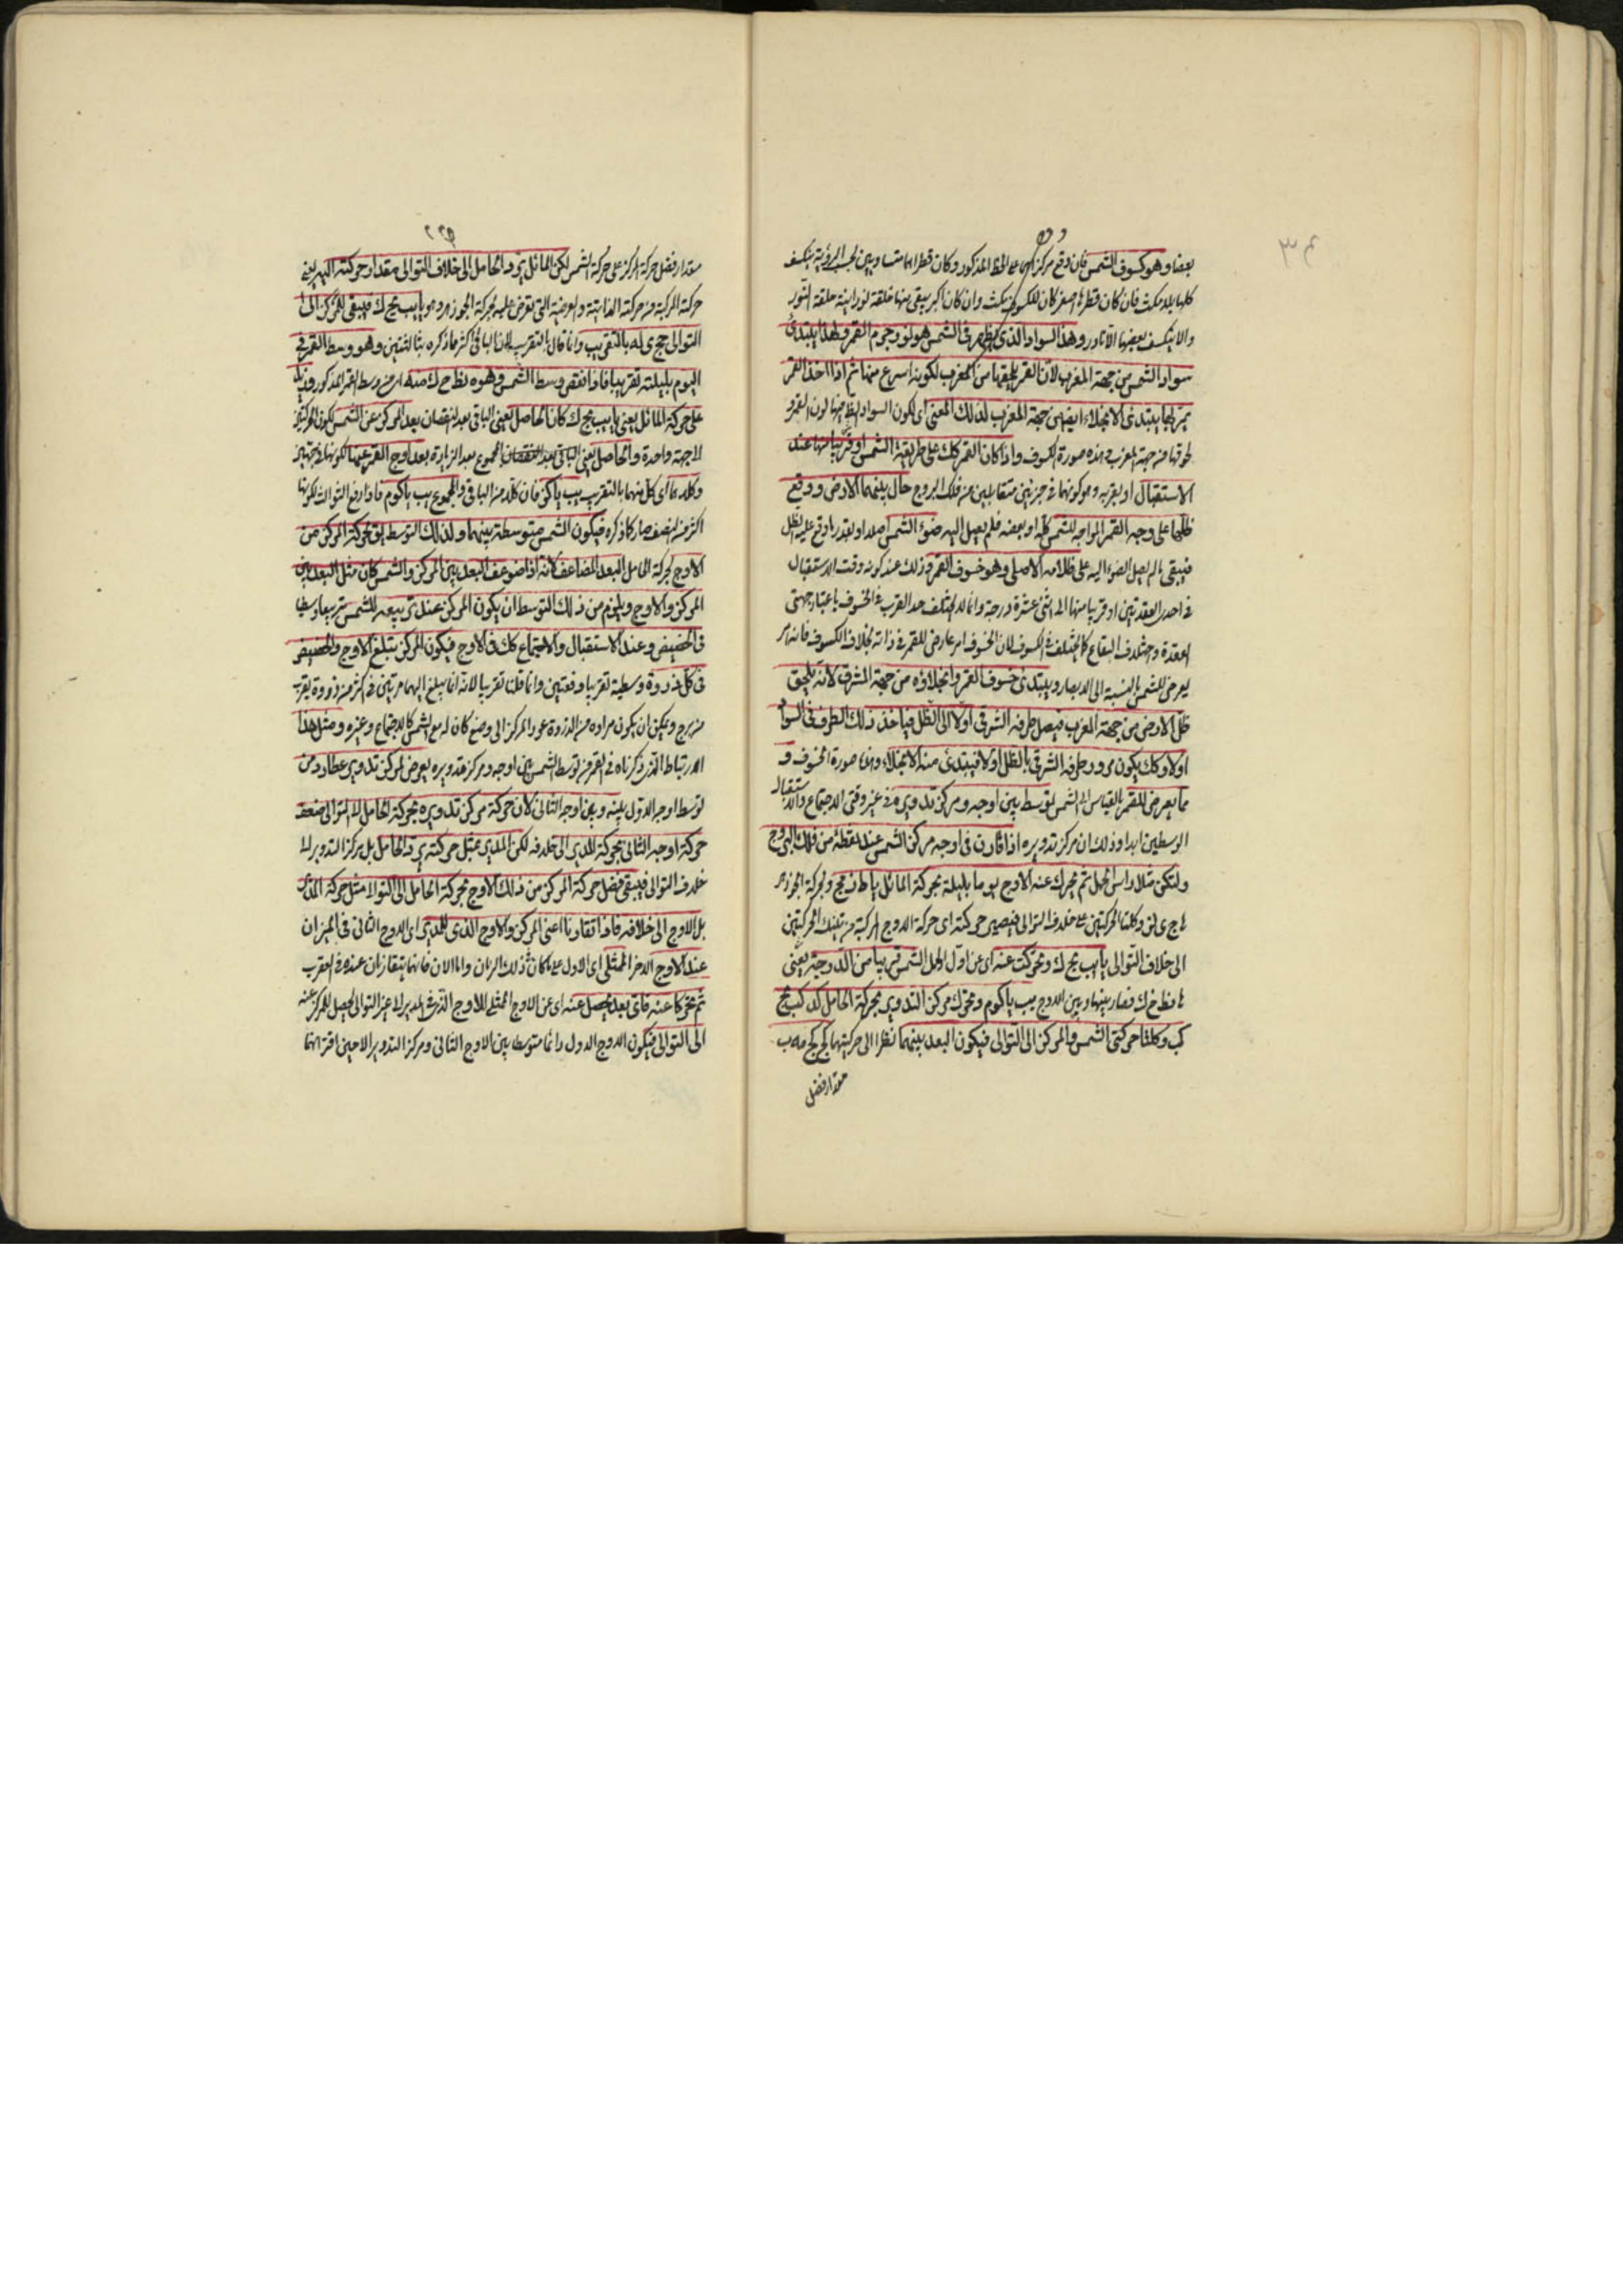 بعضا وهو كسوف الشمس فان وقع مركز على الخط المذكور وكان قطراهما متساويين بحسب الرؤية ينكسف
كلها بلا مكث فان كان قطرها اصغر كان للكسوف مكث وان كان اكبر يبقى منها حلقة نورانية حلقة النور
والا ينكسف بعضها الا نادر وهذا السواد الذى يظهر فى الشمس هو لون جرم القمر ولهذا يبتدئ
سواد الشمس من جهة المغرب لان القمر يلحقها من المغرب لكونه اسرع منها ثم اذا اخذ القمر
يمر بها يبتدى الانجلاء ايضا من جهة المغرب لذلك المعنى اى لكون السواد الظاهر منها لون القمر و
لحوقها من جهة المغرب هذه صورة الكسوف واذا كان القمر كك على طريقة الشمس او قريبا منها عند
الاستقبال او بقربه وهو كونهما فى جزئين متقابلين من فلك البروج حال بينهما الارض ووقع
ظلها على وجه القمر المواجه للشمس كله او بعضه فلم يصل اليه ضوء الشمس اصلا او بقدر ما وقع عليه الظل
فيبقى ما لم يصل الضوء اليه على ظلامه الاصلى وهو خسوف القمر وذلك عند كونه وقت الاستقبال
فى احدى العقدتين او قريبا منها الى اثنى عشرة درجة وانما لم يختلف حد القرب فى الخسوف باعتبار جهتى
العقدة واختلاف البقاع كما يختلف فى الكسوف لان الخسوف امر عارض للقمر فى ذاته بخلاف الكسوف فانه امر
يعرض للشمس بالنسبة الى الابصار ويبتدئ خسوف القمر وانجلاؤه من جهة المشرق لانه يلحق
ظل الارض من جهة المغرب فيصل طرفه الشرقى اولا الى الظل فياخذ ذلك الطرف فى السواد
اولا وكك يكون مرور طرفه الشرقى بالظل اولا فيبتدئ منه الانجلاء وهذا صورة الخسوف و
مما يعرض للقمر بالقياس الى الشمس توسطها بين اوجه ومركز تدويره فى غير وقتى الاجتماع والاستقبال
الوسطين ابدا وذلك ان مركز تدويره اذا قارن فى اوجه مركز الشمس عند نقطة من فلك البروج
ولتكن مثلا راس الحمل ثم تحرك عنه الاوج يوما بليلة بحركة المائل يا ط ز مج وبحركة الجوزهر
الى خلاف التوالى يا يب يح ك وتحركت عنه اى عن اول الحمل الشمس قريبا من الدرجة يعنى
فصار بينها وبين الاوج يب يا كوم وتحرك مركز التدوير بحركة الحامل كد كب نج
كب وكلتا حركتى الشمس والمركز الى التوالى فيكون البعد بينهما نظرا الى حركتيهما
مقدار فضل
مقدار فضل حركة المركز على حركة الشمس لكن المائل يرد الحامل الى خلاف التوالى مقدار حركته اليه يعنى
حركة المركبة من حركته الذاتية والعرضية التى تعرض عليه بحركة الجوزهر وهو يا يب يح ك فيبقى للمركز الى
التوالى يج ى له بالتقريب وانما قال بالتقريب لان الباقى اكثر مما ذكره بثالثتين وهو وسط القمر فى
اليوم بليلته تقريبا فاذا نقص وسط الشمس وهو نط ح ك منه اى من وسط القمر المذكور وزيد
على حركة المائل يعنى يا يب يح ك كان الحاصل يعنى الباقى بعد النقصان بعد المركز عن الشمس لكون الحركتين
الى جهة واحدة والحاصل يعنى المجموع بعد الزيادة بعد اوج القمر عنها لكونها فى جهتين
وكلاهما اى كل منهما بالتقريب يب يا كز فان كلا من الباقى والمجموع يب يا كوم فاذا رفع الثوالث لكونها
اكثر من النصف صار كما ذكره فيكون الشمس متوسطة بينهما ولذلك التوسط يق لحركة المركز من
الاوج لحركة الحامل البعد المضاعف لانه اذا ضوعف البعد بين المركز والشمس كان مثل البعد بين
المركز والاوج ويلزم من ذلك التوسط ان يكون المركز عند تربيعه للشمس تربيعا وسطا
فى الحضيض وعند الاستقبال والاجتماع كك فى الاوج فيكون المركز يبلغ الاوج والحضيض
فى كل دورة وسطية تقريبا دفعتين وانما قلنا تقريبا لانه انما يبلغ اليهما مرتين فى اكثر من دورة بقريب
من برج ويمكن ان يكون مراده من الدورة عود المركز الى وضع كان له مع الشمس كالاجتماع وغيره ومثل هذا
الارتباط الذى ذكرناه فى القمر من توسط الشمس بين اوجه ومركز تدويره يعرض لمركز تدوير عطارد من
توسط اوجه الاول بينه وبين اوجه الثانى لان حركة مركز تدويره بحركة الحامل الى التوالى ضعف
حركة اوجه الثانى بحركة المدير الى خلافه لكن المدير بمثل حركته يرد الحامل بل مركز التدوير الى
خلاف التوالى فيبقى فضل حركة المركز من ذلك الاوج بحركة الحامل الى التوالى مثل حركة المدير
بل الاوج الى خلافه فاذا تقارنا اعنى المركز والاوج الذى للمدير اى الاوج الثانى فى الميزان
عند الاوج الاخر الممثلى اى الاول على ما كان فى ذلك الزمان واما الان فانهما يتقارنان عنده فى العقرب
ثم تحركا عنه فاى بعد يحصل عنه اى عن الاوج الممثلى للاوج الذى فى المدير الى غير التوالى يحصل للمركز عنه
الى التوالى فيكون الاوج الاول دائما متوسطا بين الاوج الثانى ومركز التدوير الا حين اقترانهما